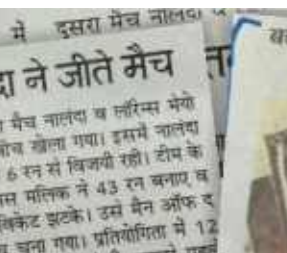 में दूसरा मैच नालंदा
ने जीते मैच
मैच नालंदा व लॉरेन्स मेयो
खेला गया। इसमें नालंदा
6 रन से विजयी रही। टीम के
मलिक ने 43 रन बनाए व
विकेट झटके। उसे मैन ऑफ द
चुना गया। प्रतियोगिता में 12